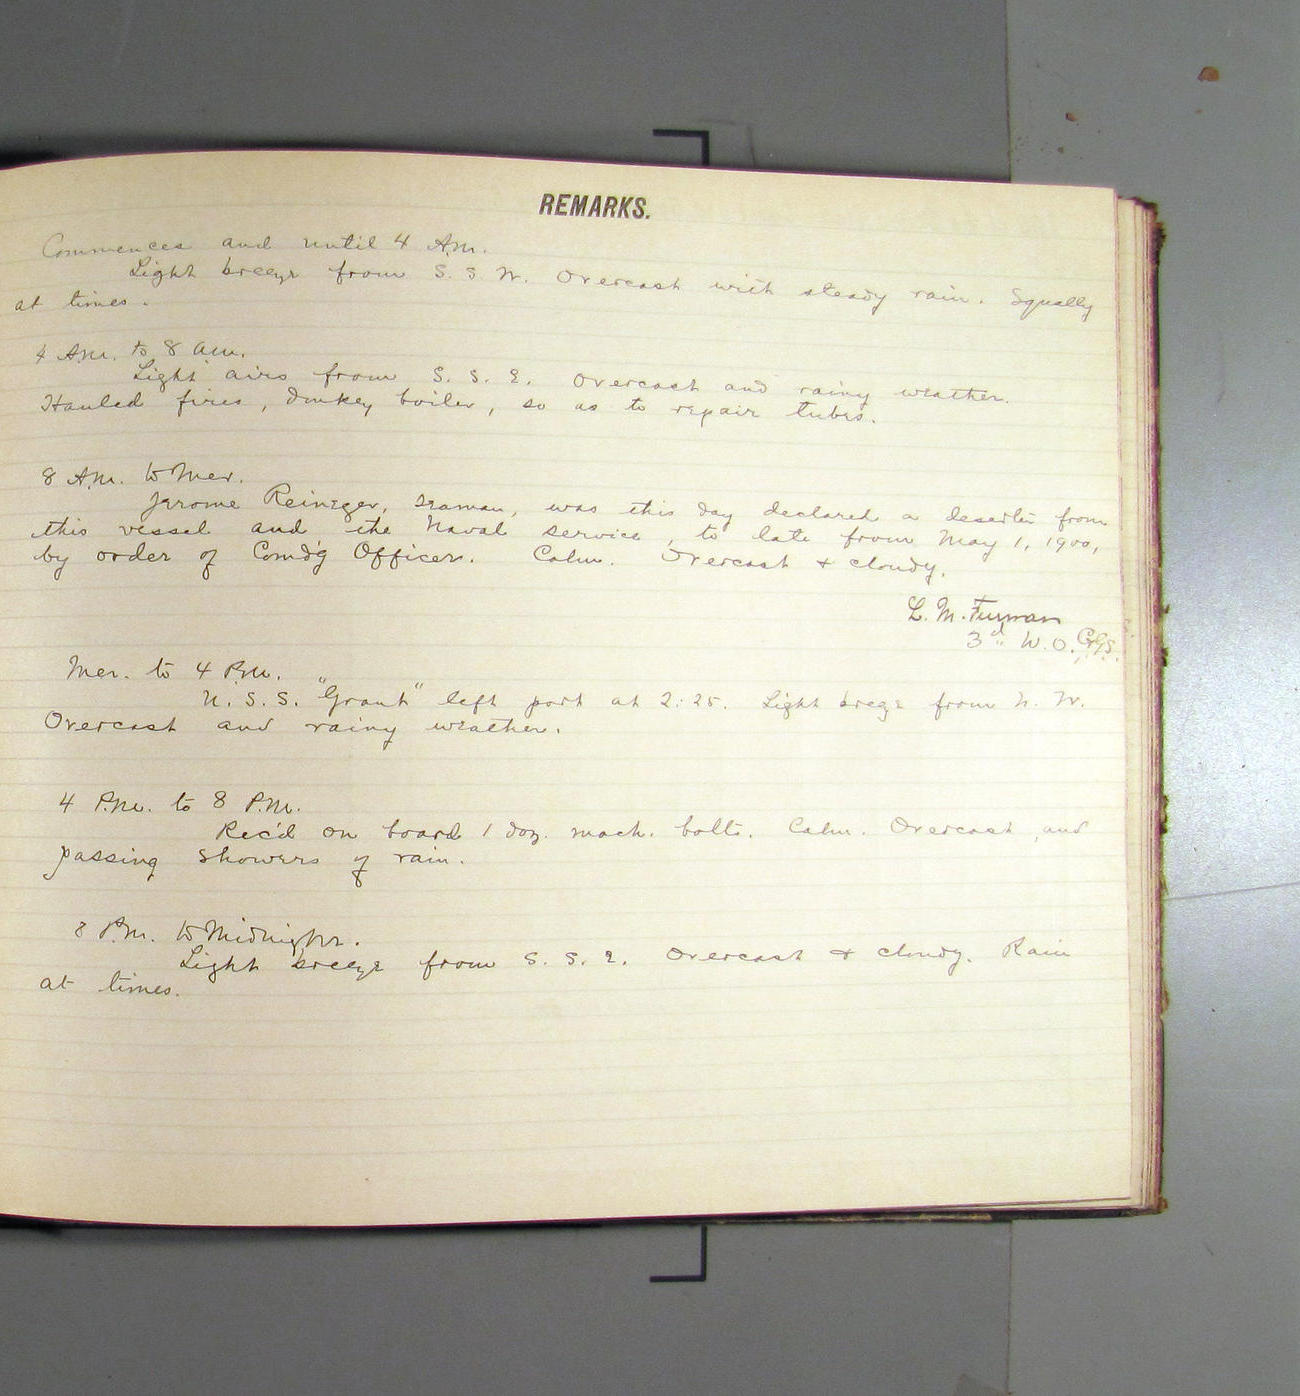 REMARKS.
Commences and until 4 A.m.
Light breeze from S. S W. Overcast with steady rain. Squally
at times.
4 A.m. to 8 a.m.
Light airs from S. S. E. Overcast and rainy weather.
Hauled fires, donkey boiler, so as to repair tubes.
8 A.m. to Mer.
Jerome Reineger, seaman, was this day declared a deserter from
this vessel and the Naval service, to date from May 1, 1900,
by order of Comd'g Officer. Calm. Overcast & cloudy.
L. M.
3d W. O.
Mer. to 4 P.m.
U. S. S. "Grant" left port at 2:25. Light breeze from N. W.
Overcast and rainy weather.
4 P.m. to 8 P.m.
Rec'd on board 1 doz. mach. bolts. Calm. Overcast and
passing showers of rain.
8 P.m. to Midnight.
Light breeze from S. S. E. Overcast & cloudy. Rain
at times.